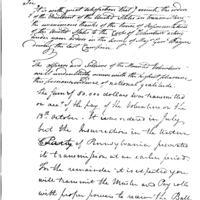 Sir,
It is with great satisfaction that I commit, the orders
of the President of the United States in announcing
the unanimous thanks of the house of Representatives
of the United States to the Corps of Volunteers who
under your orders in the Army of Maj Genl Wayne
during the last Campaign.
The officers and Soldiers of the Mounted Volunteers
well
with the highest pleasure
the
of national gratitude.
The sum of 80,000 dollars was transmitted
on acct of the pay of the Volunteers on the
13th october. It was ordered in July
but the Insurrection in the western
County of Pennsylvania prevented
its transmission at an earlier period.
For the remainder it is expected you
will transmit the Muster and Pay rolls
with proper powers to receive the Ball